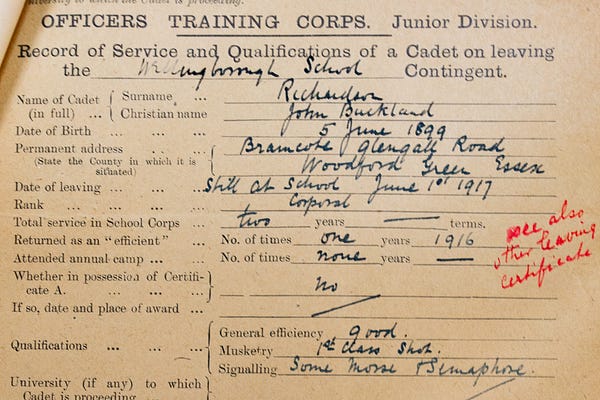 University to which the Cadet is proceeding.
OFFICERS TRAINING CORPS. Junior Division.
Record of Service and Qualifications of a Cadet on leaving
the Wellingborough School Contingent.
Name of Cadet (in full) ... { Surname ... Richardson
Christian name John Buckland
Date of Birth ... ... ... 5 June 1899
Permanent address ... ... Bramcote Glengall Road
(State the County in which it is situated) Woodford Green Essex
Date of leaving ... ... ... Still at School June 1st 1917
Rank ... ... ... ... Corporal
Total service in School Corps ... two years — terms.
Returned as an "efficient" ... No. of times one years 1916
Attended annual camp ... ... No. of times none years —
see also
other leaving
certificate
Whether in possession of Certifi-
cate A. ... ... ... } No
If so, date and place of award ...
Qualifications ... ... ... { General efficiency good.
Musketry 1st Class Shot.
Signalling Some Morse & Semaphore.
University (if any) to which
Cadet is proceeding